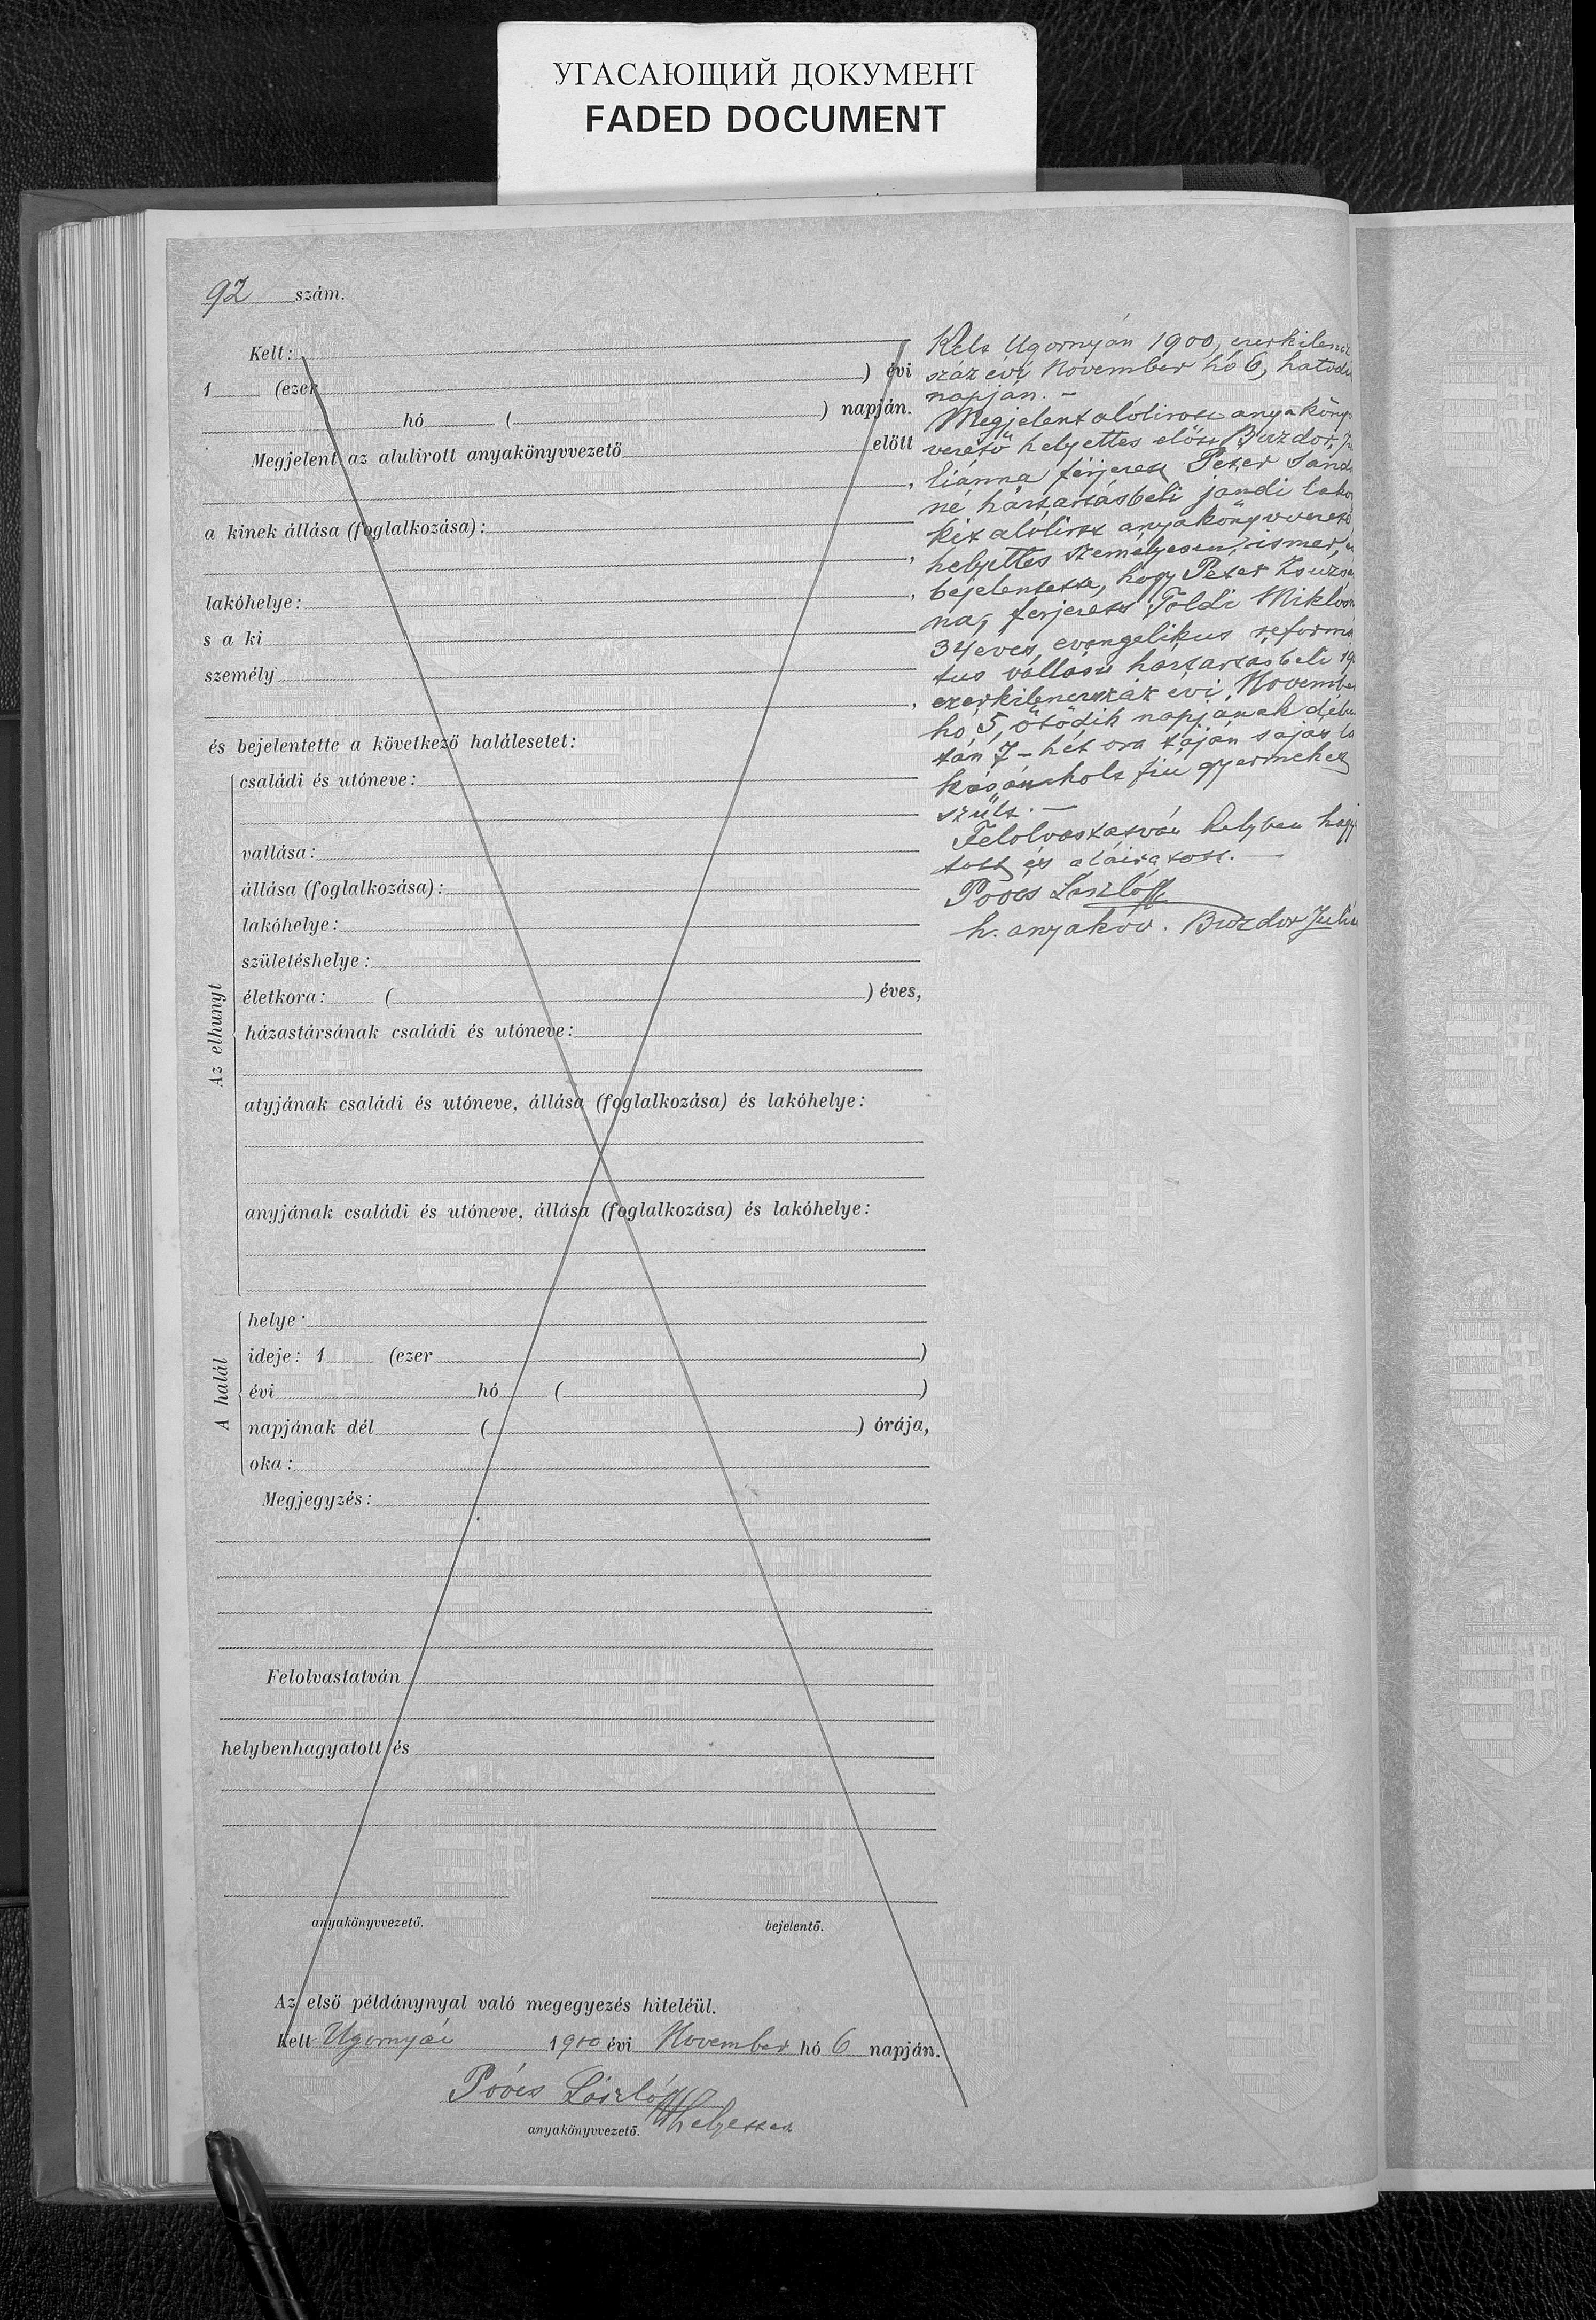 УГАСАЮЩИЙ ДОКУМЕНТ
FADED DOCUMENT
92 szám.
Kelt:
1 (ezer ) évi
hó ( ) napján.
Megjelent az alulirott anyakönyvvezető előtt
,
a kinek állása (foglalkozása):
,
lakóhelye: ,
s a ki
személy
,
és bejelentette a következő halálesetet:
Az elhunyt
családi és utóneve:
vallása:
állása (foglalkozása):
lakóhelye:
születéshelye:
életkora: ( ) éves,
házastársának családi és utóneve:
atyjának családi és utóneve, állása (foglalkozása) és lakóhelye:
anyjának családi és utóneve, állása (foglalkozása) és lakóhelye:
A halál
helye:
ideje: 1 (ezer )
évi hó ( )
napjának dél ( ) órája,
oka:
Megjegyzés:
Felolvastatván
helybenhagyatott és
anyakönyvvezető. bejelentő.
Az első példánynyal való megegyezés hiteléül.
Kelt Ugornyán 1900 évi November hó 6 napján.
Póócs László
anyakönyvvezető. helyettes
Kelt Ugornyán 1900, ezerkilencz
száz évi November hó 6, hatodi
napján. —
Megjelent alólirott anyaköny
vezető helyettes előtt Buzdor Ju
liánna férjezett Péter Sánd
né háztartásbeli jándi lako
kit alólirt anyakönyvvezető
helyettes személyesen ismer, 
bejelentette, hogy Péter Zsuzsá
na, férjezett Földi Miklós
34 éves, evangelikus reformá
tus vallású háztartásbeli 19
ezerkilenczszáz évi November
hó 5, ötödik napjának délu
tán 7 – hét óra táján saját la
kásán holt fiu gyermeket
szült. —
Felolvastatván helyben hagy
tott és aláiratott. —
Póócs László
h. anyakvv. Buzdor Juliá